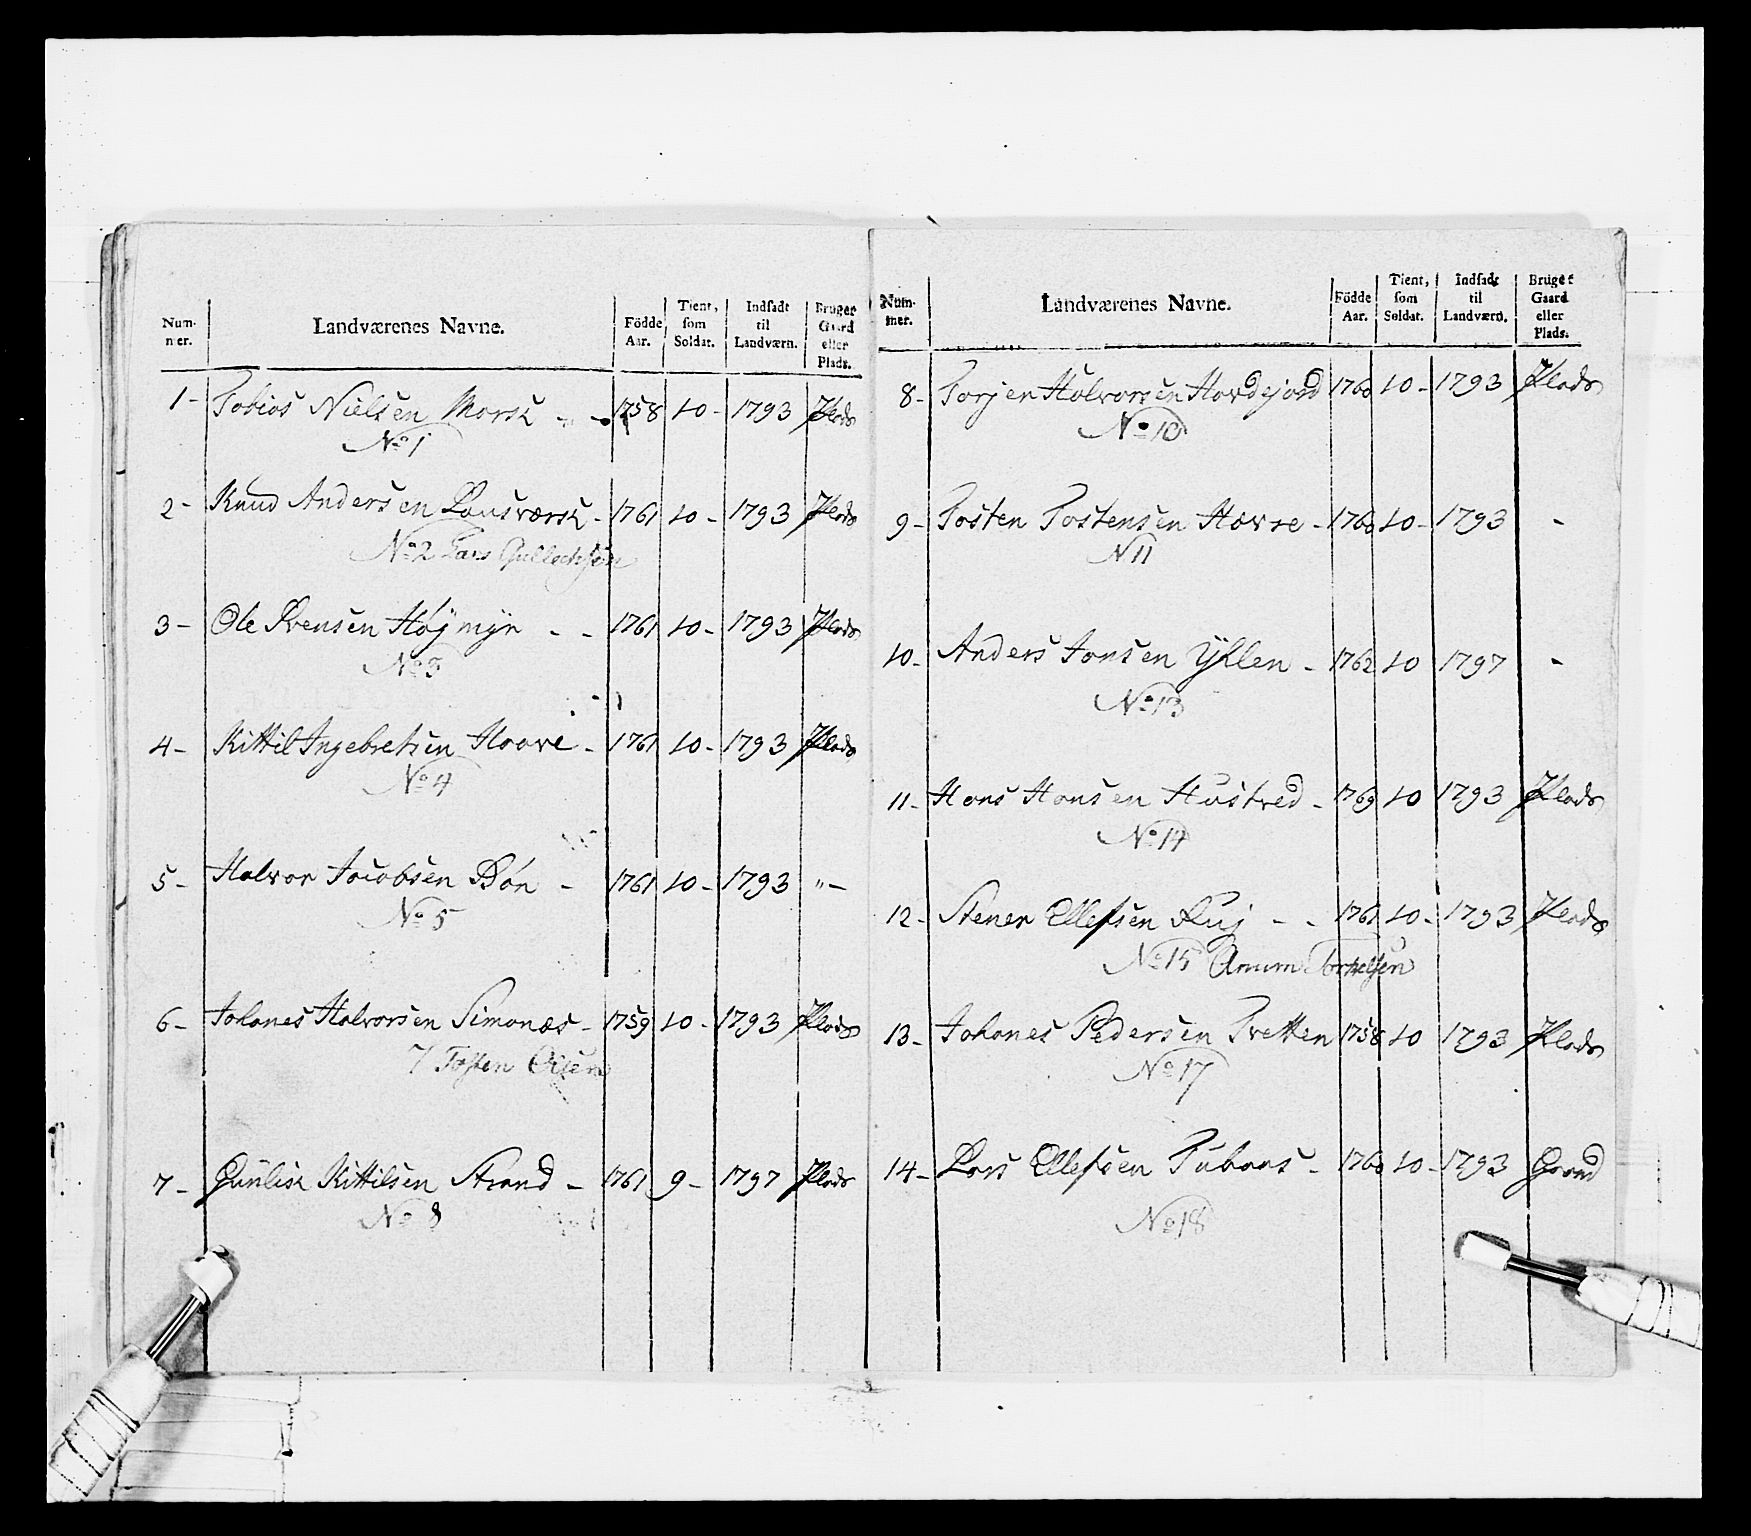 Num-
ner. Landværenes Navne. Födde
Aar. Tient,
som
Soldat. Indsadt
til
Landværn. Bruger
Gaard
eller
Plads.
1 - Tobias Nielsen Morsk - - 1758 10 - 1793 Plads
No 1
2 - Knud Andersen Lausværsk - 1761 10 - 1793 Plads
No 2 Lars Gullechsen
3 - Ole Svensen Höjmyr - - 1761 10 - 1793 Plads
No 3
4 - Kittil Ingebretsen Haave - 1761 10 - 1793 Plads
No 4
5 - Halvor Jacobsen Bön - 1761 10 - 1793 " -
No 5
6 - Johanes Halvorsen Simonæs - 1759 10 - 1793 Plads
7 Tosten Olsen
7 - Gunlisk Kittilsen Strand - 1761 9 - 1797 Plads
No 8
Num-
mer. Landværenes Navne. Födde
Aar. Tient,
som
Soldat. Indsadt
til
Landværn. Bruger
Gaard
eller
Plads.
8 - Torjer Halvorsen Hovdejord 1760 10 - 1793 Plads
No 10
9 - Tosten Tostensen Havre - 1760 10 - 1793 -
N 11
10 - Anders Jonsen Yllen - 1762 10 1797 -
No 13
11 - Hans Hansen Hustved - 1769 10 1793 Plads
No 14
12 - Stener Ellefsen Ruj - - 1761 10 - 1793 Plads
No 15 Anum Torkelsen
13 - Johanes Pedersen Tvetten 1758 10 1793 Plads
No 17
14 - Lars Ellefsen Tubaas - 1760 10 - 1793 Gaard
No 18